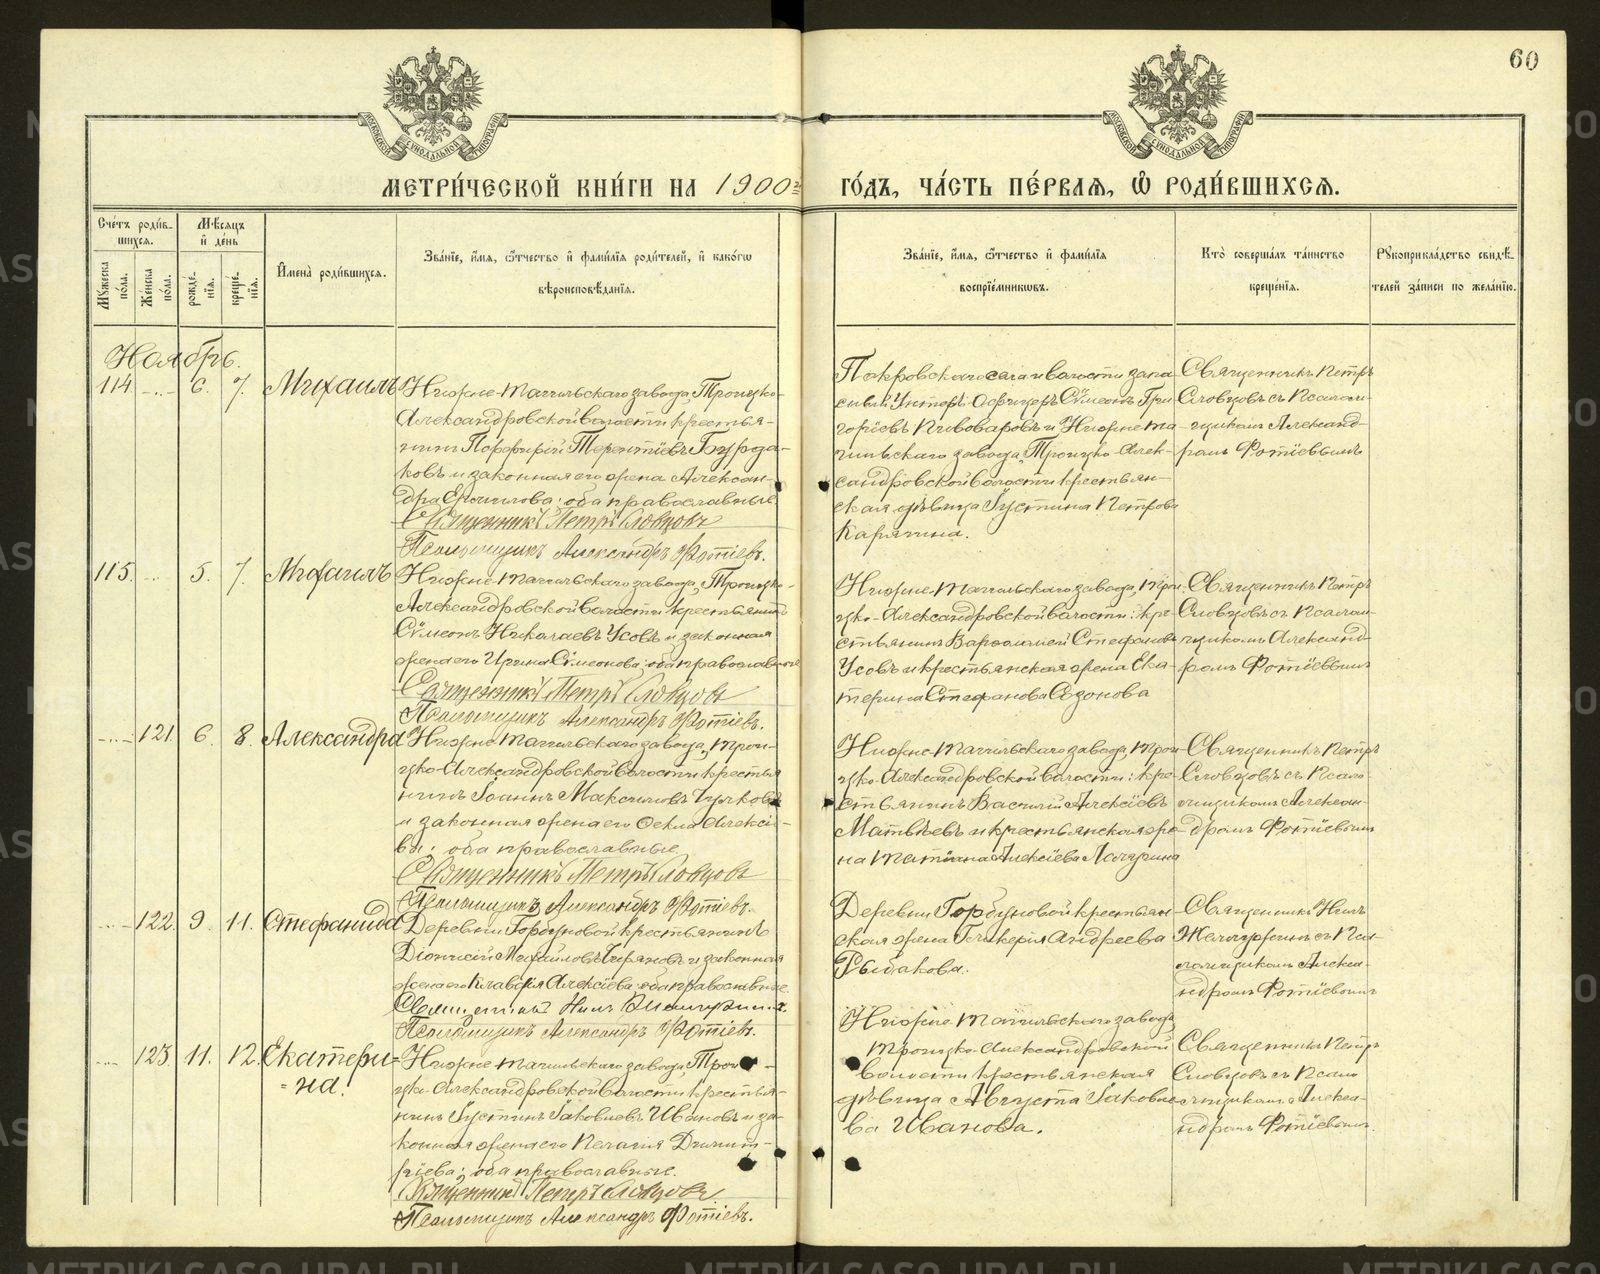 60
МОСКОВСКОЙ СѴНОДАЛЬНОЙ ТИПОГРАФІИ
МОСКОВСКОЙ СѴНОДАЛЬНОЙ ТИПОГРАФІИ
МЕТРИ́ЧЕСКОЙ КНИ́ГИ НА 1900 ГО́ДЪ, ЧА́СТЬ ПЕ́РВАѦ, Ѡ҆ РОДИ́ВШИХСѦ.
Сче́тъ роди́в-
шихсѧ.
Мꙋ́жеска по́ла.
Же́нска по́ла.
Мѣ́сѧцъ
и҆ де́нь
рожде́-нїѧ.
креще́-нїѧ.
И҆мена̀ роди́вшихсѧ.
Зва́нїе, и҆́мѧ, ѻ҆́тчество и҆ фами́лїѧ роди́телей, и҆ како́гѡ
вѣроисповѣ́данїѧ.
Зва́нїе, и҆́мѧ, ѻ҆́тчество и҆ фами́лїѧ
воспрїе́мникѡвъ.
Кто̀ соверша́лъ та́инство
креще́нїѧ.
Рꙋкоприкла́дство свидѣ́-
телей за́писи по жела́нїю.
Ноябрь.
114 6. 7. Михаилъ
Нижне-Тагильскаго завода, Троицко-
Александровской волости крестья-
нинъ Порфирій Терентіевъ Бурда-
ковъ и законная его жена Алексан-
дра; оба православные
Священникъ Петръ Словцовъ
Псаломщикъ Александръ Фотіевъ.
Покровскаго села и волости запа
сный Унтеръ-Офицеръ Сѵмеонъ Гри-
горіевъ Пивоваровъ и Нижне-Та-
гильскаго завода, Троицко-Алек-
сандровской волости крестьян-
ская дѣвица Іустина Петрова
Карягина.
Священникъ Петръ
Словцовъ съ Псалом-
щикомъ Александ-
ромъ Фотіевымъ
115. 5. 7. Михаилъ
Нижне-Тагильскаго завода, Троицко-
Александровской волости крестьянинъ
Сѵмеонъ Николаевъ Усовъ и законная
жена его Ирина Сѵмеонова; оба православные
Священникъ Петръ Словцовъ
Псаломщикъ Александръ Фотіевъ.
Нижне-Тагильскаго завода, Трои-
цко-Александровской волости: кре-
стьянинъ Варфоломей Стефановъ
Усовъ и крестьянская жена Ека-
терина Стефанова Созонова
Священникъ Петръ
Словцовъ съ Псалом-
щикомъ Александ-
ромъ Фотіевымъ
121. 6. 8. Александра
Нижне-Тагильскаго завода, Трои-
цко-Александровской волости крестья
нинъ Іоаннъ Максимовъ
и законная жена его Ѳекла Алексіе-
ва; оба православные
Священникъ Петръ Словцовъ
Псаломщикъ Александръ Фотіевъ.
Нижне-Тагильскаго завода, Трои
цко-Александровской волости: кре-
стьянинъ Василій Алексіевъ
Матвѣевъ и крестьянская же-
на Татіана Алексіева
Священникъ Петръ
Словцовъ съ Псало-
мщикомъ Алексан-
дромъ Фотіевымъ
122. 9. 11. Стефанида
Деревни Горбуновой крестьянинъ
Діонисій Михайловъ и законная
жена его Клавдія Алексіева; оба православные.
Священникъ Нилъ
Псаломщикъ Александръ Фотіевъ.
Деревни Горбуновой крестьян-
ская жена Гликерія Андреева
Рыбакова.
Священникъ Нилъ
съ Пса-
ломщикомъ Алекса-
ндромъ Фотіевымъ
123. 11. 12. Екатери-
на.
Нижне-Тагильскаго завода Трои-
цко-Александровской волости крестья-
нинъ Іустинъ Іаковлевъ Ивановъ и за-
конная жена его Пелагія Димит-
ріева; оба православные.
Священникъ Петръ Словцовъ
Псаломщикъ Александръ Фотіевъ.
Нижне-Тагильскаго завода,
Троицко-Александровской
волости крестьянская
дѣвица Августа Іаковле-
ва Иванова.
Священникъ Петръ
Словцовъ съ Псало
мщикомъ Алекса-
ндромъ Фотіевымъ.
METRIKI.GASO-URAL.RU
METRIKI.GASO-URAL.RU